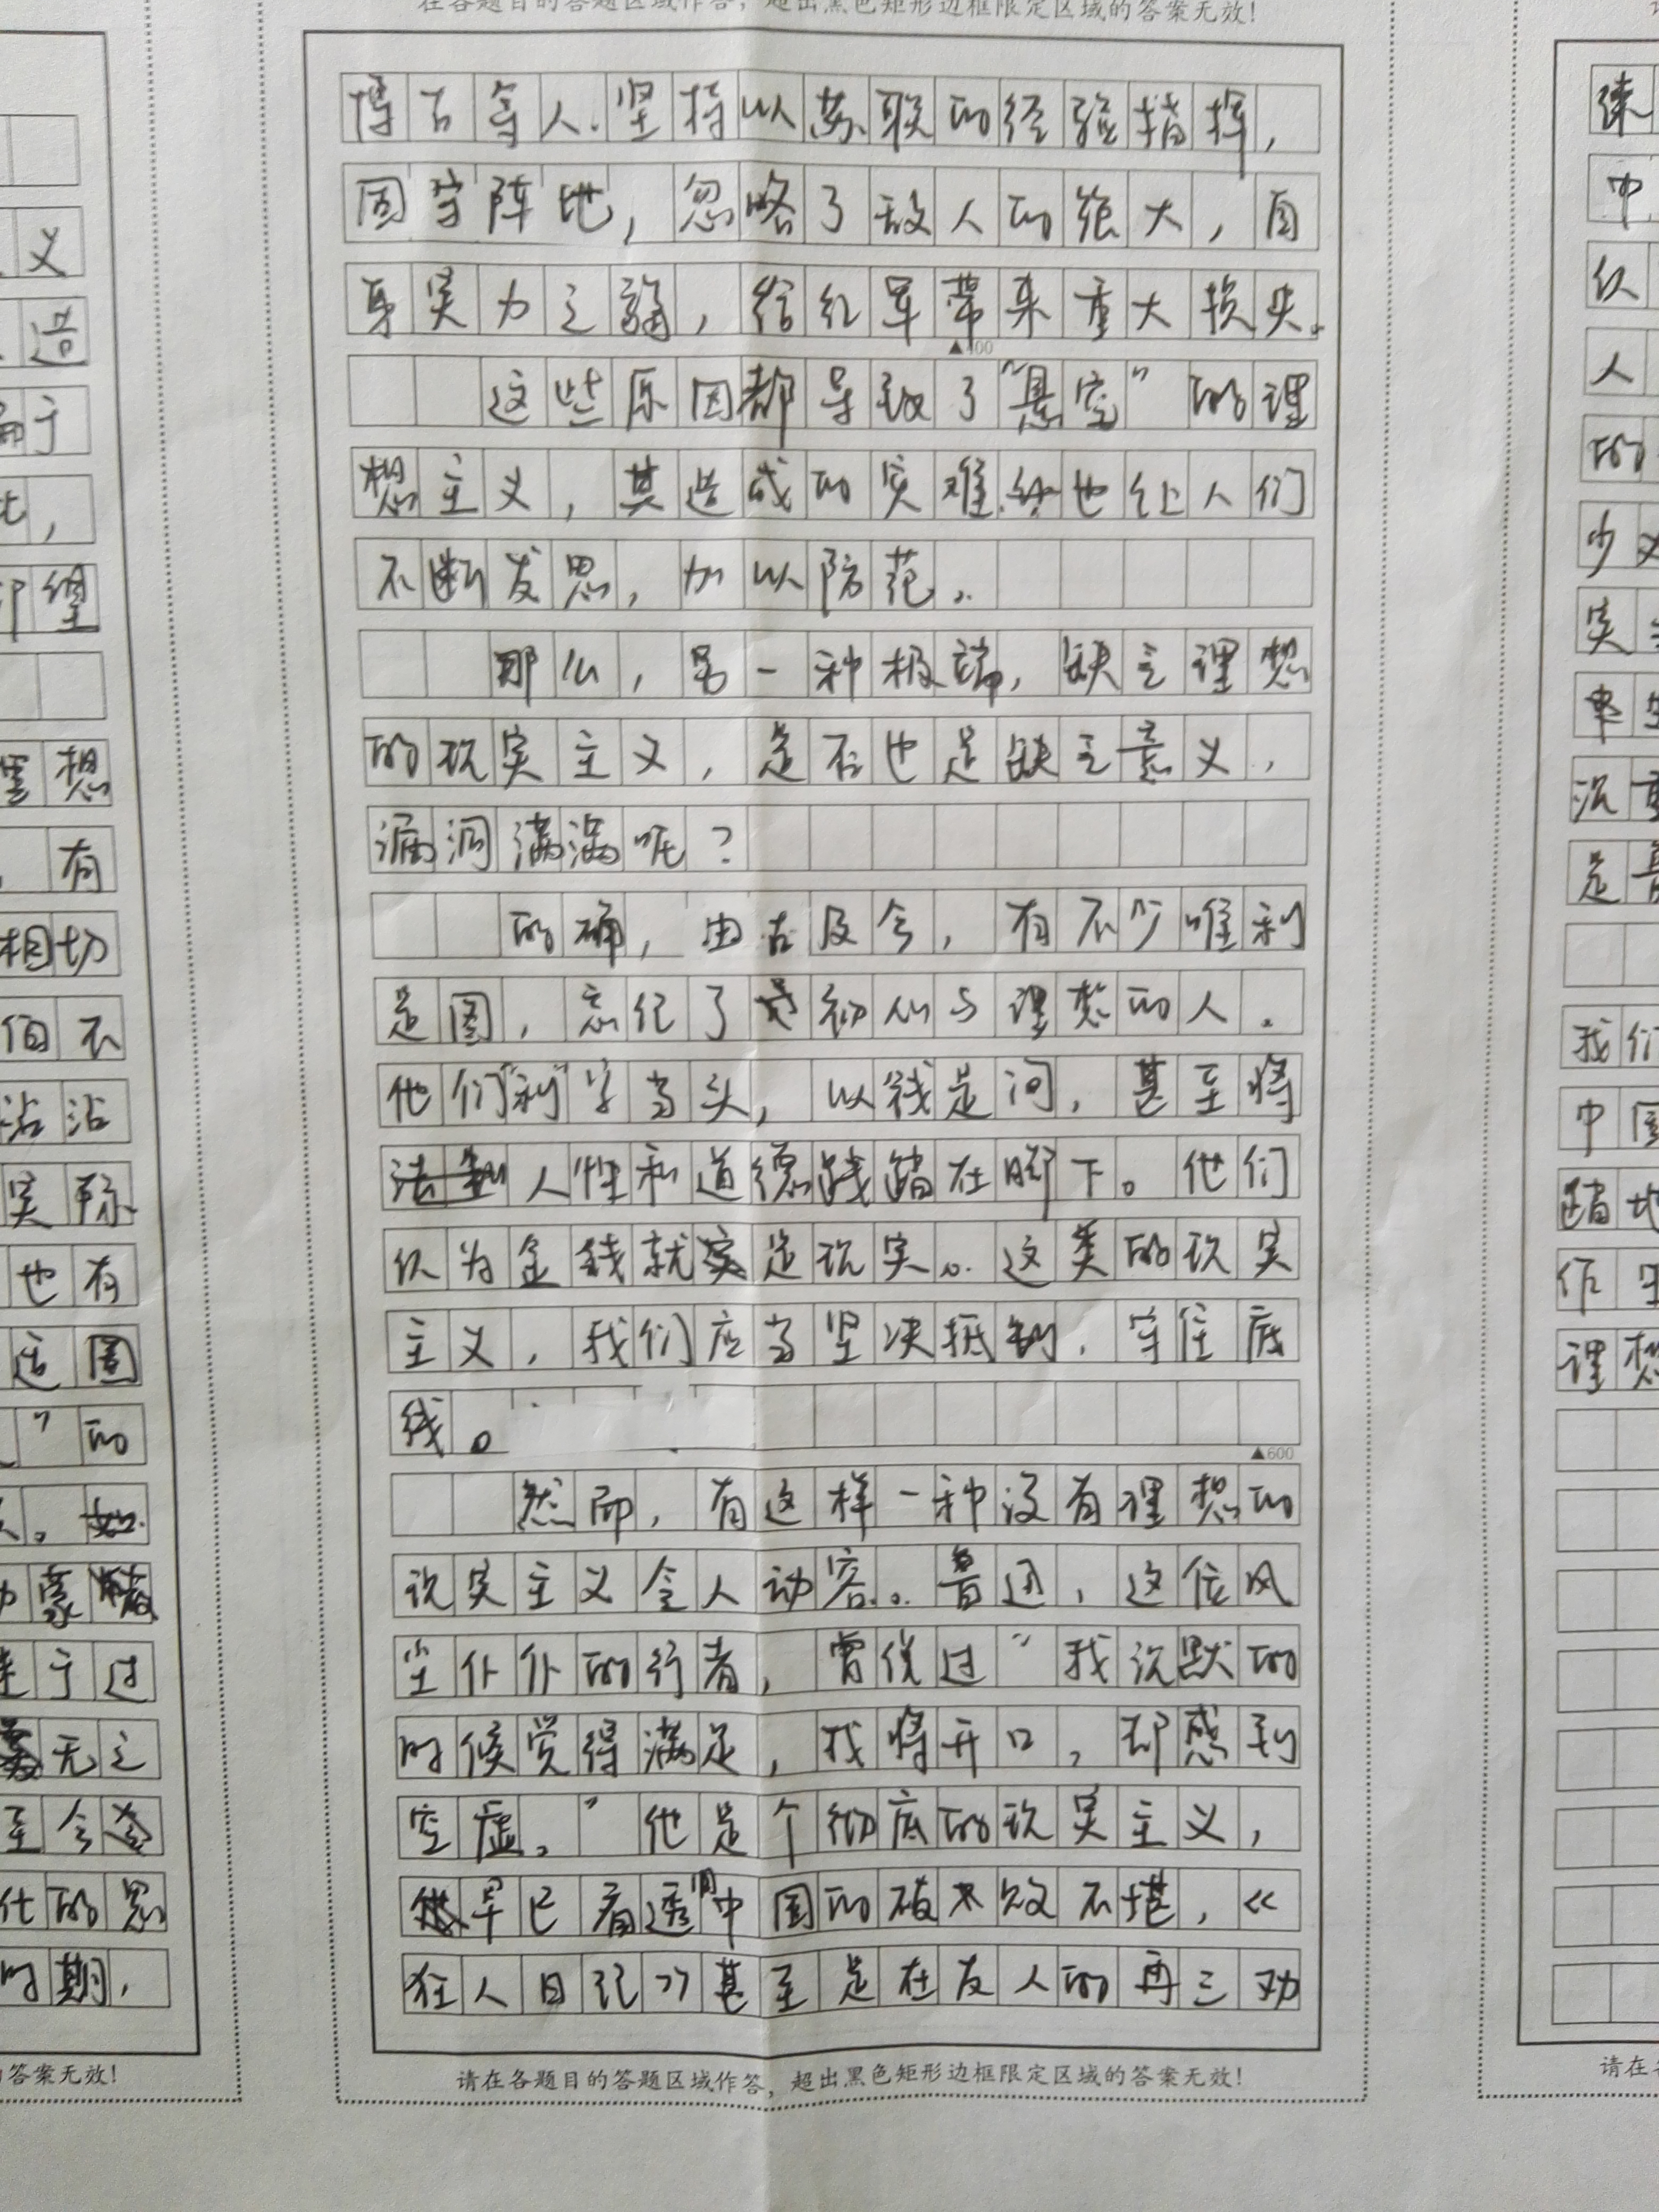 在各题目的答题区域作答，超出黑色矩形边框限定区域的答案无效!
博古等人坚持以苏联的经验指挥，
固守阵地，忽略了敌人的强大，自
身实力之弱，给红军带来重大损失。
▲400
这些原因都导致了“悬空”的理
想主义，其造成的灾难也让人们
不断发思，加以防范。
那么，另一种极端，缺乏理想
的现实主义，是否也是缺乏意义，
漏洞满满呢？
的确，由古及今，有不少唯利
是图，忘记了初心与理想的人。
他们“利”字当头，以钱是问，甚至将
人性和道德践踏在脚下。他们
认为金钱就是现实。这类的现实
主义，我们应当坚决抵制，守住底
线。
▲600
然而，有这样一种没有理想的
现实主义令人动容。鲁迅，这位风
尘仆仆的行者，曾说过“我沉默的
时候觉得满足，我将开口，却感到
空虚。”他是个彻底的现实主义，
早已看透中国的破败不堪，《
狂人日记》甚至是在友人的再三劝
请在各题目的答题区域作答，超出黑色矩形边框限定区域的答案无效!
义
造
于
想
有
相切
伯不
沾沾
实际
也有
这圈
”的
无之
至今
代的忽
时期，
的答案无效!
练
中
认
人
的
少
实
率
沉重
是
我们
中国
踏地
作
理想
请在各